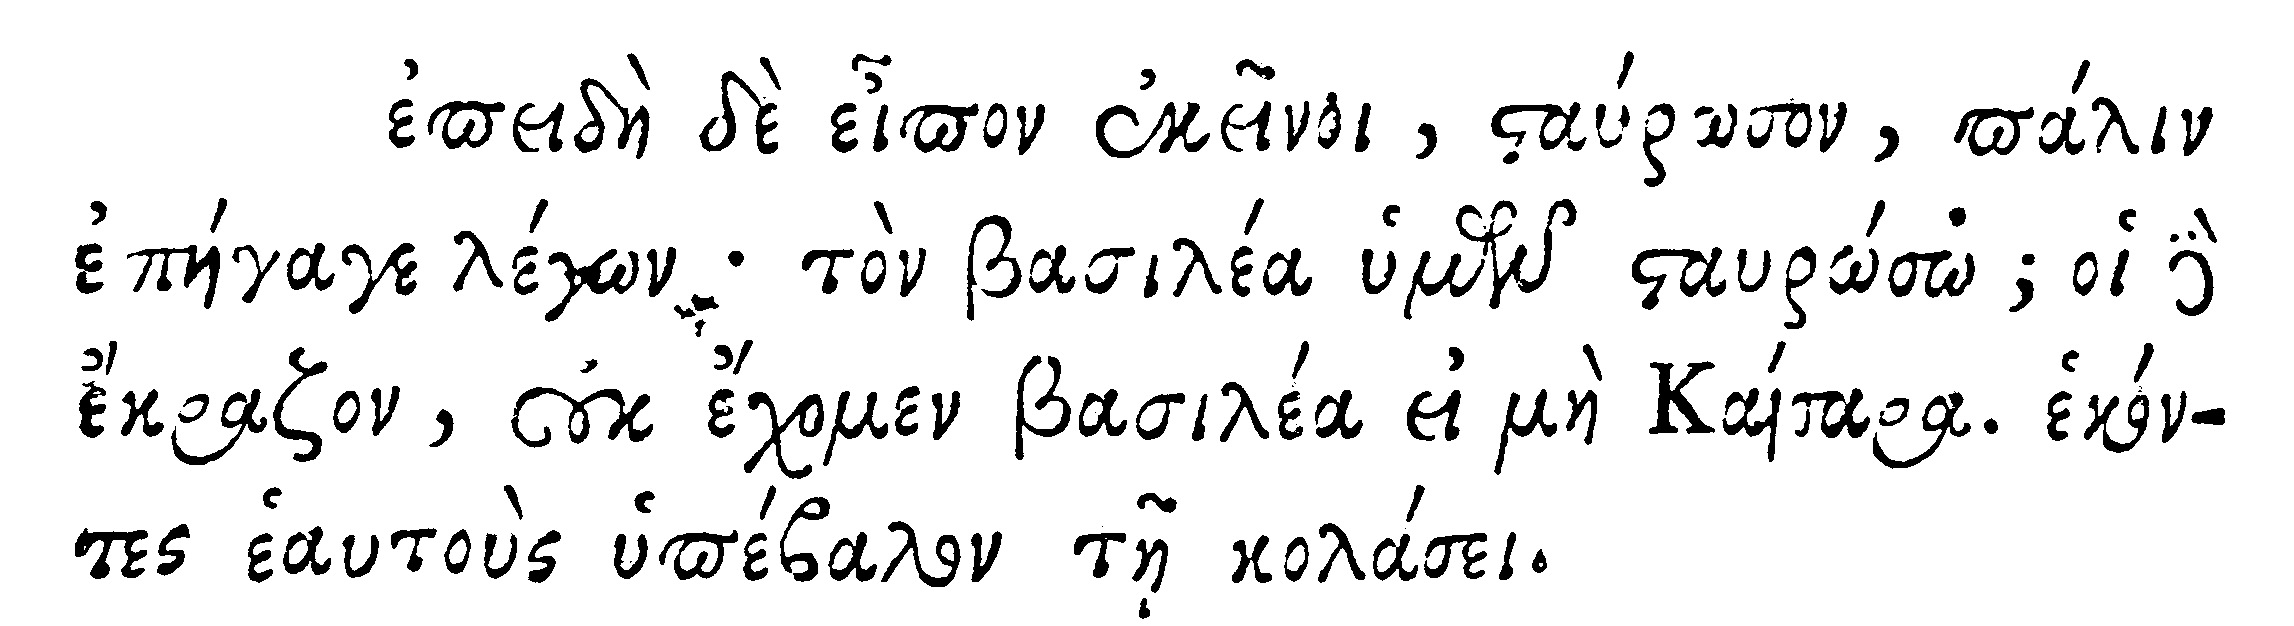 ἐπειδὴ δὲ εἶπον ἐκεῖνοι, σταύρωσον, πάλιν
ἐπήγαγε λέγων· τὸν βασιλέα ὑμῶν σταυρώσω; οἱ δὲ
ἔκραζον, οὐκ ἔχομεν βασιλέα εἰ μὴ Καίσαρα. ἑκόν-
τες ἑαυτοὺς ὑπέβαλον τῇ κολάσει.